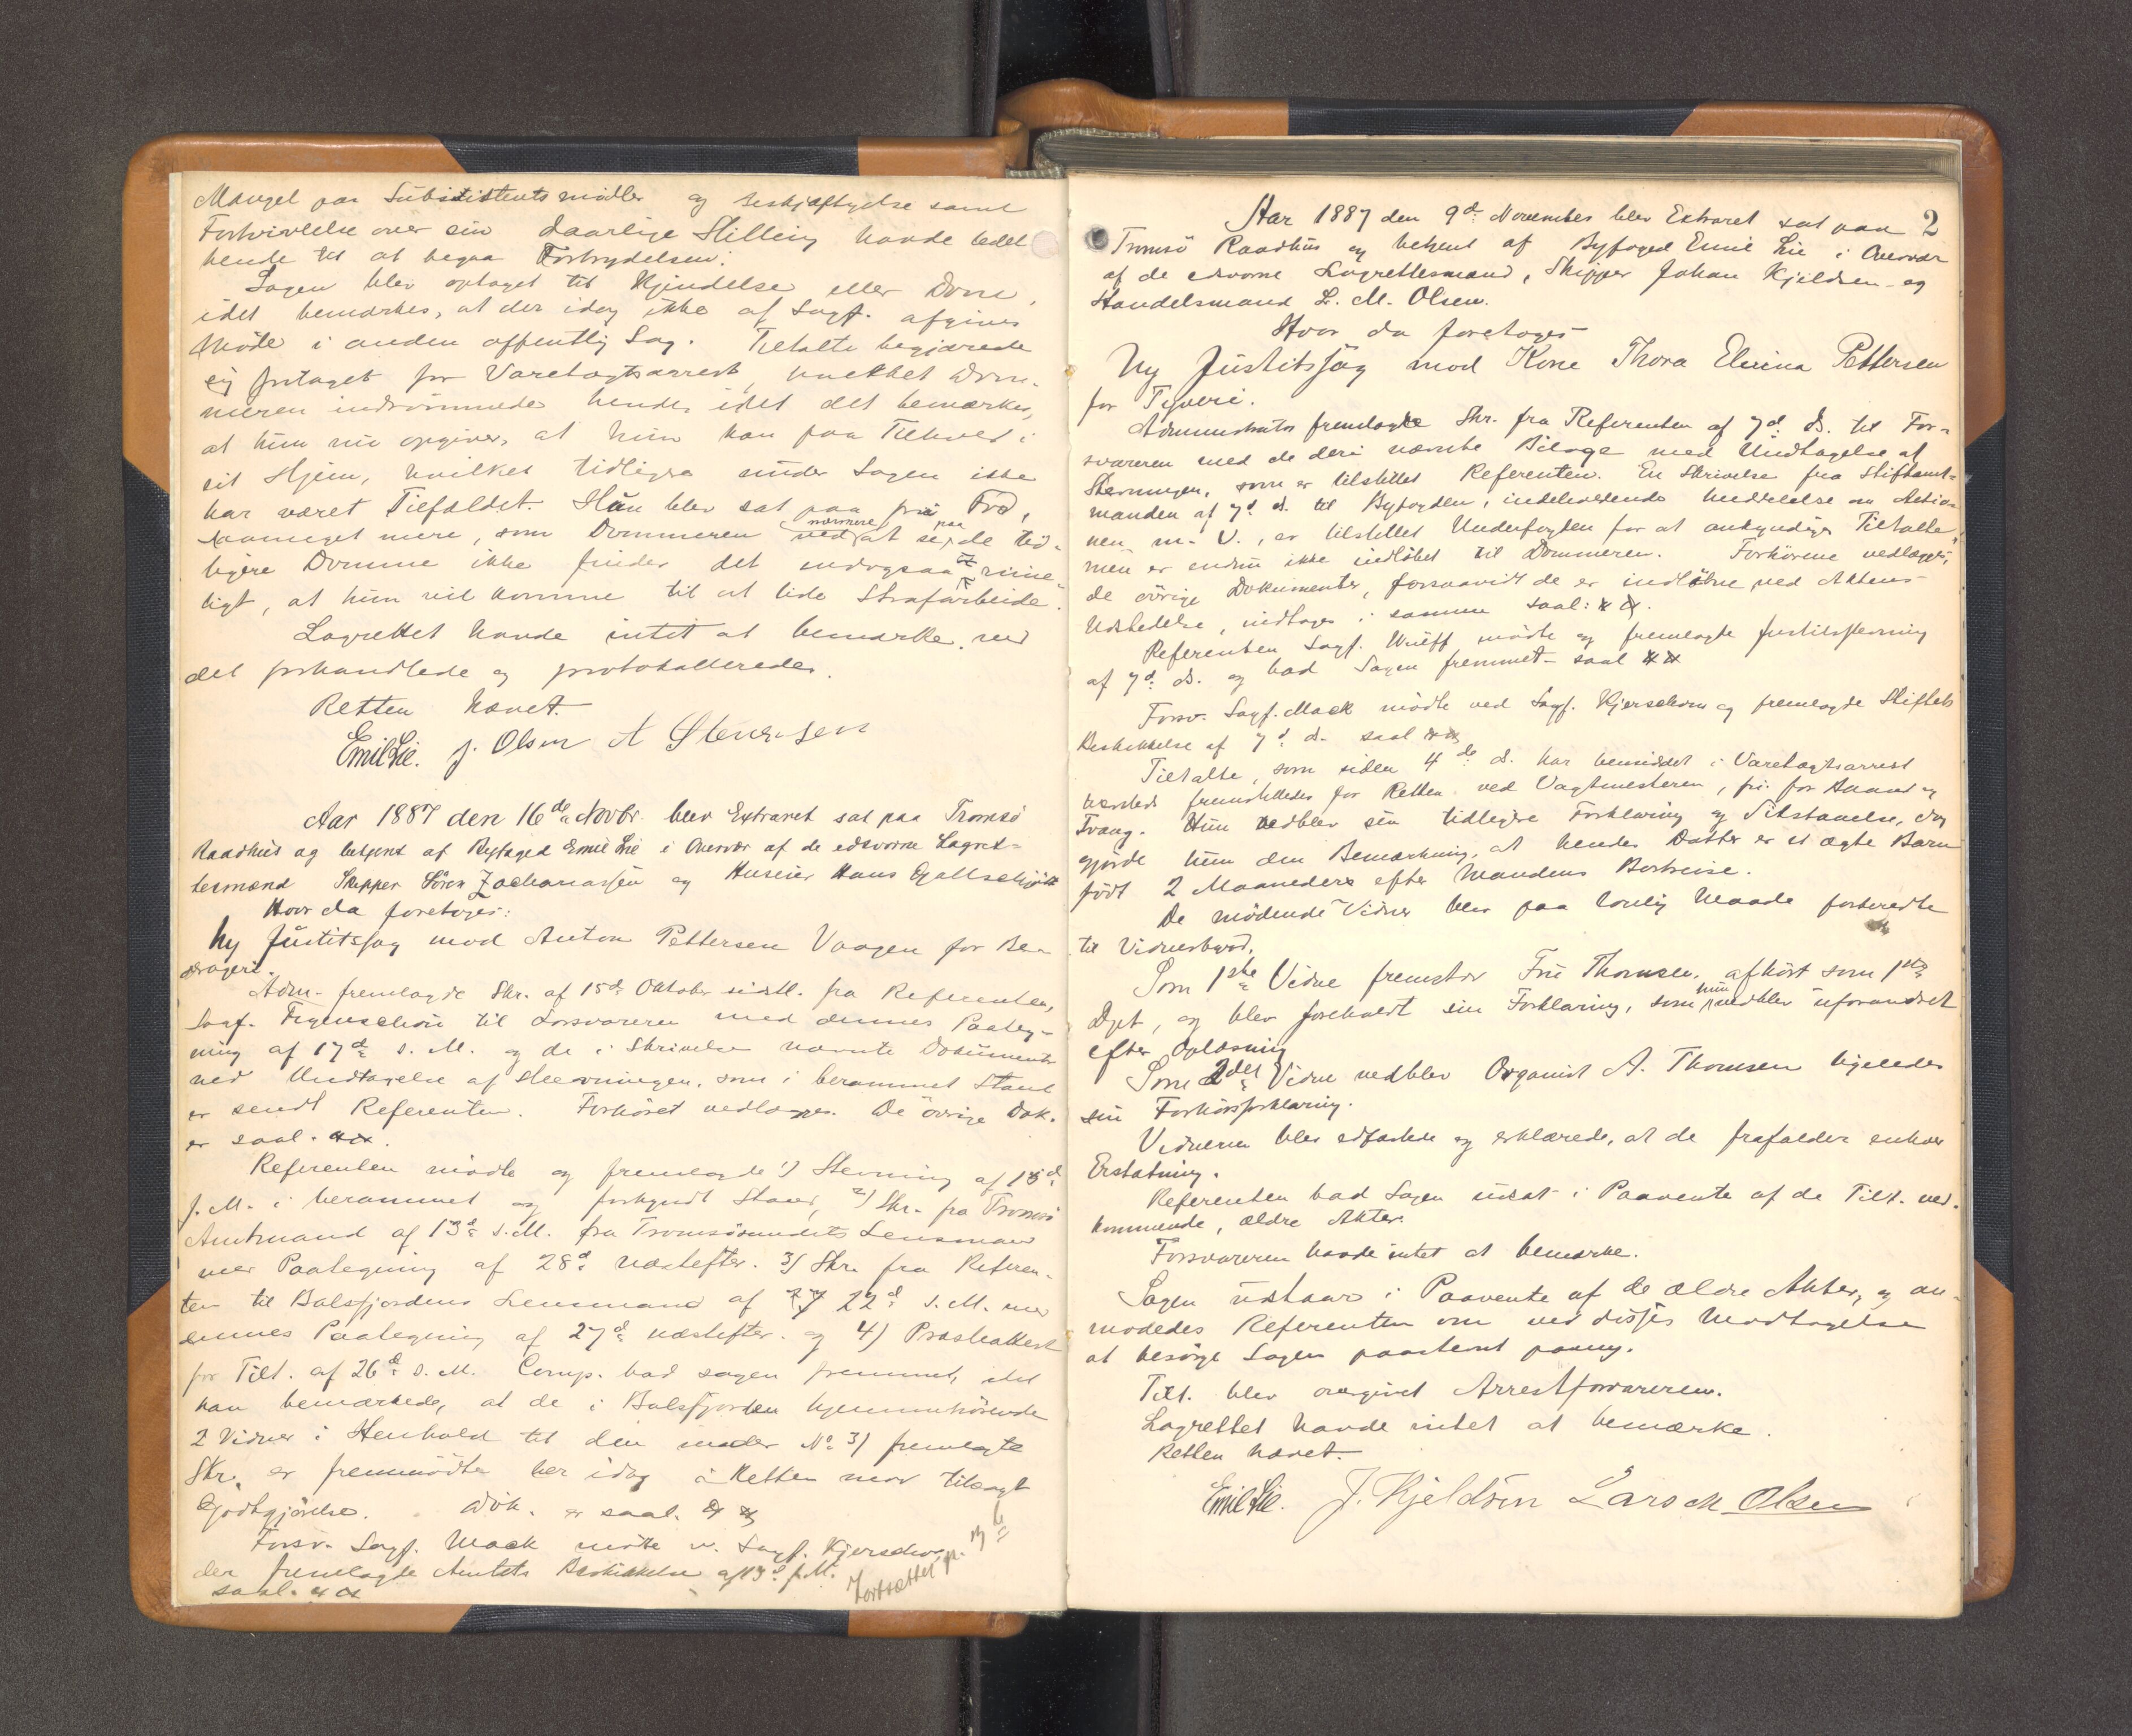 Mangel paa Subsistentsmidler og Beskjæftigelse samt
Fortvivlelse over sin daarlige Stilling havde ledet
hende til at begaa Forbrydelsen.
Sagen blev optaget til Kjendelse eller Dom,
idet bemærkes, at der idag ikke af Sagf. afgives
Møde i anden offentlig Sag. Tiltalte begjærede
sig fritaget for Varetægtsarrest, hvilket Dom-
meren indrømmede hende, idet det bemærkes,
at hun nu opgiver, at hun kan faa Tilhold i
sit Hjem, hvilket tidligere under Sagen ikke
har været Tilfældet. Hun blev sat paa fri Fod,
saameget mere, som Dommeren ved nærmere at se paa de tid-
ligere Domme ikke finder det endogsaa rime-
ligt, at hun vil komme til at lide Strafarbeide.
Lagrettet havde intet at bemærke ved
det forhandlede og protokollerede.
Retten hævet.
Emil Lie. J. Olsen A Stenersen
Aar 1887 den 16de Novbr. blev Extraret sat paa Tromsø
Raadhus og betjent af Byfoged Emil Lie i Overvær af de edsvorne Lagret-
tesmænd Skipper Søren Zachariassen og Huseier Hans
Hvor da foretoges:
Ny Justitssag mod Anton Pettersen Vaagen for Be-
drageri.
Adm. fremlagde Skr. af 15de Oktober sidstl. fra Referenten,
Sagf. Figenschou til Forsvareren med dennes Paateg-
ning af 17de s. M. og de i Skrivelse nævnte Dokumenter
med Undtagelse af Stevningen, som i berammet Stand
er sendt Referenten. Forhøret vedlægges. De øvrige Dok.
er saal.
Referenten mødte og fremlagde 1) Stevning af 15d
f. M. i berammet og forkyndt Stand, 2) Skr. fra Tromsø
Amtmand af 13d s. M. fra Tromsøsundets Lensmand
med Paategning af 28d næstefter. 3) Skr. fra Referen-
ten til Balsfjordens Lensmand af 22d s. M. med
dennes Paategning af 27d næstefter. og 4) Præsteattest
for Tilt. af 26d s. M. Comp. bad sagen fremmet, idet
han bemærkede, at de i Balsfjorden hjemmehørende
2 Vidner i Henhold til den under No 3) fremlagte
Skr. er fremmødte her idag i Retten mod tilsagt
Godtgjørelse. Dok. er saal.
Forsv. Sagf. Mack mødte v. Sagf. Kjerschow,
der fremlagde Amtets Beskikkelse af 13d f. M.
saal.
Fortsættes p.
2
Aar 1887 den 9d November blev Extraret sat paa
Tromsø Raadhus og betjent af Byfoged Emil Lie i Overvær
af de edsvorne Lagrettesmænd, Skipper Johan Kjeldsen og
Handelsmand L. M. Olsen.
Hvor da foretoges
Ny Justitssag mod Kone Thora Elvina Pettersen
for Tyveri.
Administrator fremlagde Skr. fra Referenten af 7d ds. til For-
svareren med de deri nævnte Bilage med Undtagelse af
Stevningen, som er tilstillet Referenten. En Skrivelse fra Stiftamt-
manden af 7d ds. til Byfogden, indeholdende Meddelelse om Aktio-
nen m. V., er tilstillet Underfogden for at forkyndes Tiltalte,
men er endnu ikke indløbet til Dommeren. Forhørene vedlægges,
de øvrige Dokumenter, forsaavidt de er indløbne, ved Aktens
Udstedelse, indtages i samme saal:
Referenten Sagf. Wulff mødte og fremlagte Justitsstevning
af 7d ds. og bad Sagen fremmet – saal
Forsv. Sagf. Mack mødte ved Sagf. Kjerschow og fremlagde Stiftets
Beskikkelse af 7d ds. saal
Tiltalte, som siden 4de ds. har hensiddet i Varetægtsarrest
fremstilledes for Retten ved Vagtmesteren, fri for Baand og
Tvang. Hun vedblev sin tidligere Forklaring og Tilstaaelse, dog
gjorde hun den Bemærkning, at hendes Datter er et ægte Barn
født 2 Maaneder efter Mandens Bortreise.
De mødende Vidner blev paa lovlig Maade forberedte
til Vidnesbyrd.
Som 1ste Vidne fremstod Fru Thomsen, afhørt som 1ste
Dept, og blev foreholdt sin Forklaring, som hun vedblev uforandret
efter Oplæsning
Som 2det Vidne vedblev Organist A. Thomsen ligeledes
sin Forhørsforklaring.
Vidnerne blev edfæstede og erklærede, at de frafalder enhver
Erstatning.
Referenten bad Sagen udsat i Paavente af de Tilt. ved-
kommende, ældre Akter.
Forsvareren havde intet at bemærke.
Sagen udstaar i Paavente af de ældre Akter, og an-
modedes Referenten om ved disses Modtagelse
at besørge Sagen paastevnt paany.
Tilt. blev overgivet Arrestforvareren.
Lagrettet havde intet at bemærke.
Retten hævet.
Emil Lie. J. Kjeldsen Lars M Olsen